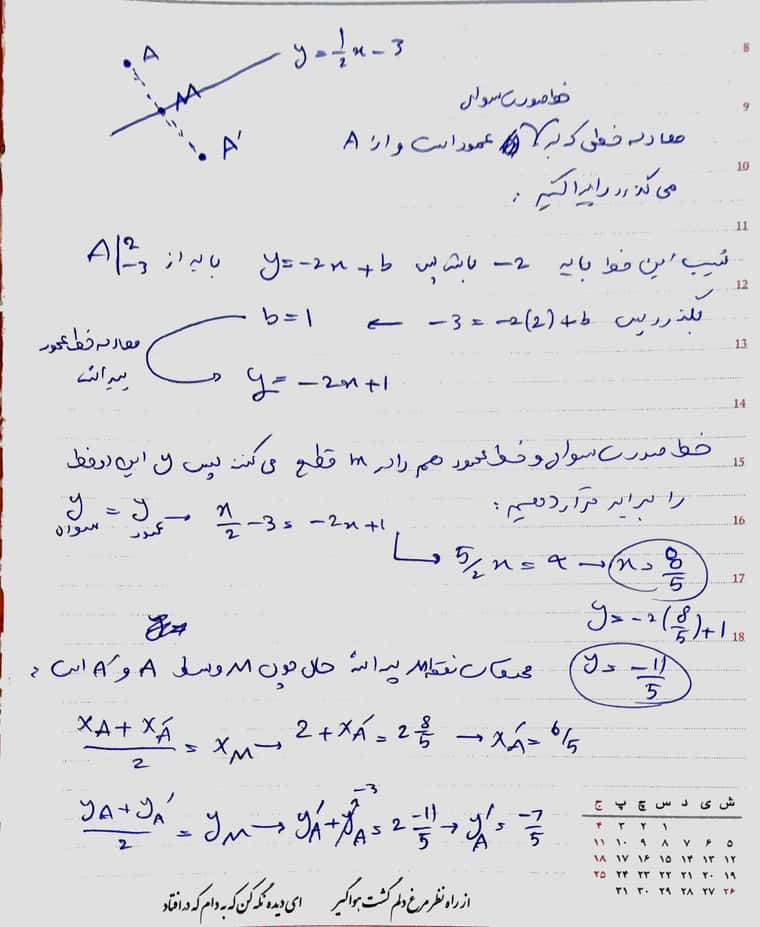 A
y = 1/2 x - 3
M
A'
8
خط صورت سوال
9
معادله خطی که بر عمود است و از A
10
می گذرد را پیدا کنیم :
11
شیب این خط باید -2 باشد پس y = -2x + b باید از A|2 -3
12
بگذرد پس -3 = -2(2)+b ← b = 1
13
معادله خط عمود
پیدا شد
y = -2x + 1
14
خط صورت سوال و خط عمود هم را در M قطع می کنند پس y این دو خط
15
را برابر قرار دهیم :
16
y سوال = y عمود → x/2 - 3 = -2x + 1
5/2 x = 4 → x = 8/5
17
y = -2(8/5)+1
18
y = -11/5
مختصات نقطه M پیدا شد حال چون M وسط A و A' است :
(xA + xA')/2 = xM → 2 + xA' = 2 8/5 → xA' = 6/5
(yA + yA')/2 = yM → yA' + yA -3 = 2 -11/5 → yA' = -7/5
ش ی د س چ پ ج
۱ ۲ ۳ ۴
۵ ۶ ۷ ۸ ۹ ۱۰ ۱۱
۱۲ ۱۳ ۱۴ ۱۵ ۱۶ ۱۷ ۱۸
۱۹ ۲۰ ۲۱ ۲۲ ۲۳ ۲۴ ۲۵
۲۶ ۲۷ ۲۸ ۲۹ ۳۰ ۳۱
از راه نظر مرغ دلم گشت هواگیر ای دیده نگه کن که به دام که در افتاد